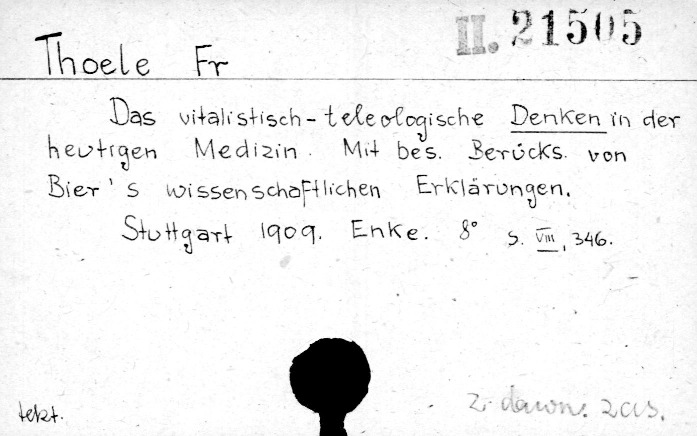 II. 21505
Thoele Fr
Das vitalistisch-teleologische Denken in der
heutigen Medizin. Mit bes. Berücks. von
Bier's wissenschaftlichen Erklärungen.
Stuttgart 1909. Enke. 8° S. VIII, 346.
tekt.
z dawn. zas.